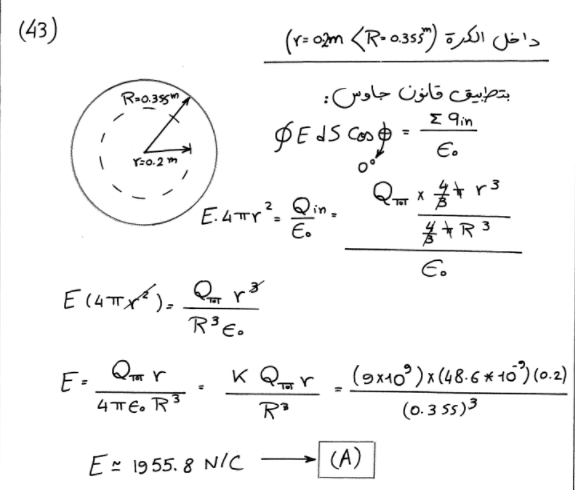 (43)
داخل الكرة (r = 0.2m < R = 0.355m)
بتطبيق قانون جاوس :
R=0.355m
r=0.2m
∮ E dS cos ϕ = Σ qin / ε₀
0°
E. 4πr² = Qin / ε₀ = (QTOT × 4/3 π r³ / 4/3 π R³) / ε₀
E (4πr²) = QTOT r³ / R³ε₀
E = QTOT r / 4πε₀ R³ = K QTOT r / R³ = (9×10⁹)×(48.6*10⁻⁹)(0.2) / (0.355)³
E ≃ 1955.8 N/C → (A)